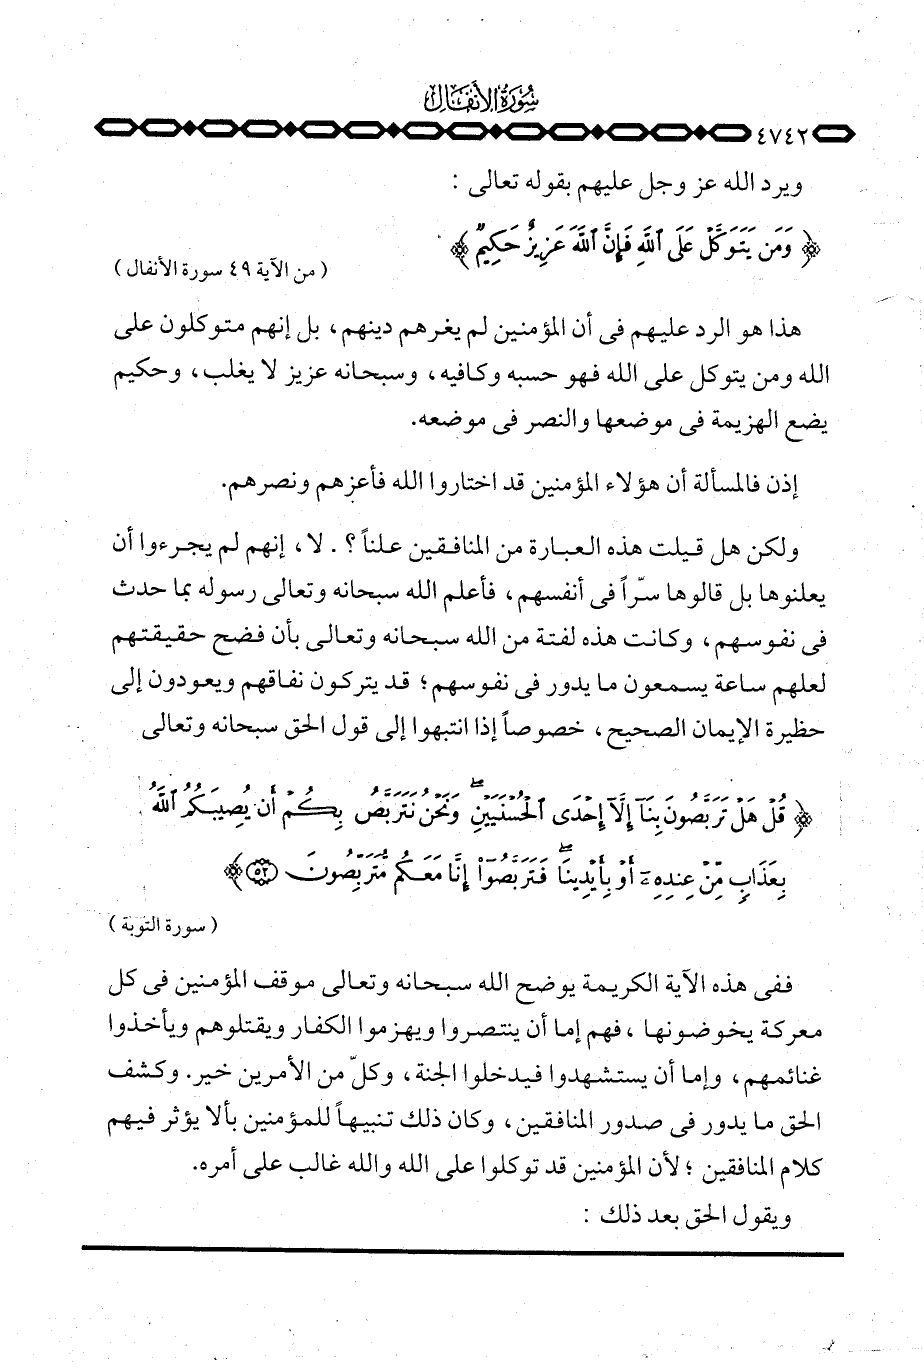 سُورَةُ الأَنفَالِ
٤٧٤٢
ويرد الله عز وجل عليهم بقوله تعالى :
﴿ وَمَن يَتَوَكَّلْ عَلَى ٱللَّهِ فَإِنَّ ٱللَّهَ عَزِيزٌ حَكِيمٌ ﴾
( من الآية ٤٩ سورة الأنفال )
هذا هو الرد عليهم فى أن المؤمنين لم يغرهم دينهم، بل إنهم متوكلون على
الله ومن يتوكل على الله فهو حسبه وكافيه، وسبحانه عزيز لا يغلب، وحكيم
يضع الهزيمة فى موضعها والنصر فى موضعه.
إذن فالمسألة أن هؤلاء المؤمنين قد اختاروا الله فأعزهم ونصرهم.
ولكن هل قيلت هذه العبارة من المنافقين علناً ؟ . لا، إنهم لم يجرءوا أن
يعلنوها بل قالوها سرّاً فى أنفسهم، فأعلم الله سبحانه وتعالى رسوله بما حدث
فى نفوسهم، وكانت هذه لفتة من الله سبحانه وتعالى بأن فضح حقيقتهم
لعلهم ساعة يسمعون ما يدور فى نفوسهم؛ قد يتركون نفاقهم ويعودون إلى
حظيرة الإيمان الصحيح، خصوصاً إذا انتبهوا إلى قول الحق سبحانه وتعالى
﴿ قُلْ هَلْ تَرَبَّصُونَ بِنَآ إِلَّآ إِحْدَى ٱلْحُسْنَيَيْنِ ۖ وَنَحْنُ نَتَرَبَّصُ بِكُمْ أَن يُصِيبَكُمُ ٱللَّهُ
بِعَذَابٍ مِّنْ عِندِهِۦٓ أَوْ بِأَيْدِينَا ۖ فَتَرَبَّصُوٓا۟ إِنَّا مَعَكُم مُّتَرَبِّصُونَ ۝٥٢ ﴾
( سورة التوبة )
ففى هذه الآية الكريمة يوضح الله سبحانه وتعالى موقف المؤمنين فى كل
معركة يخوضونها ، فهم إما أن ينتصروا ويهزموا الكفار ويقتلوهم ويأخذوا
غنائمهم، وإما أن يستشهدوا فيدخلوا الجنة، وكلّ من الأمرين خير. وكشف
الحق ما يدور فى صدور المنافقين، وكان ذلك تنبيهاً للمؤمنين بألا يؤثر فيهم
كلام المنافقين ؛ لأن المؤمنين قد توكلوا على الله والله غالب على أمره.
ويقول الحق بعد ذلك :